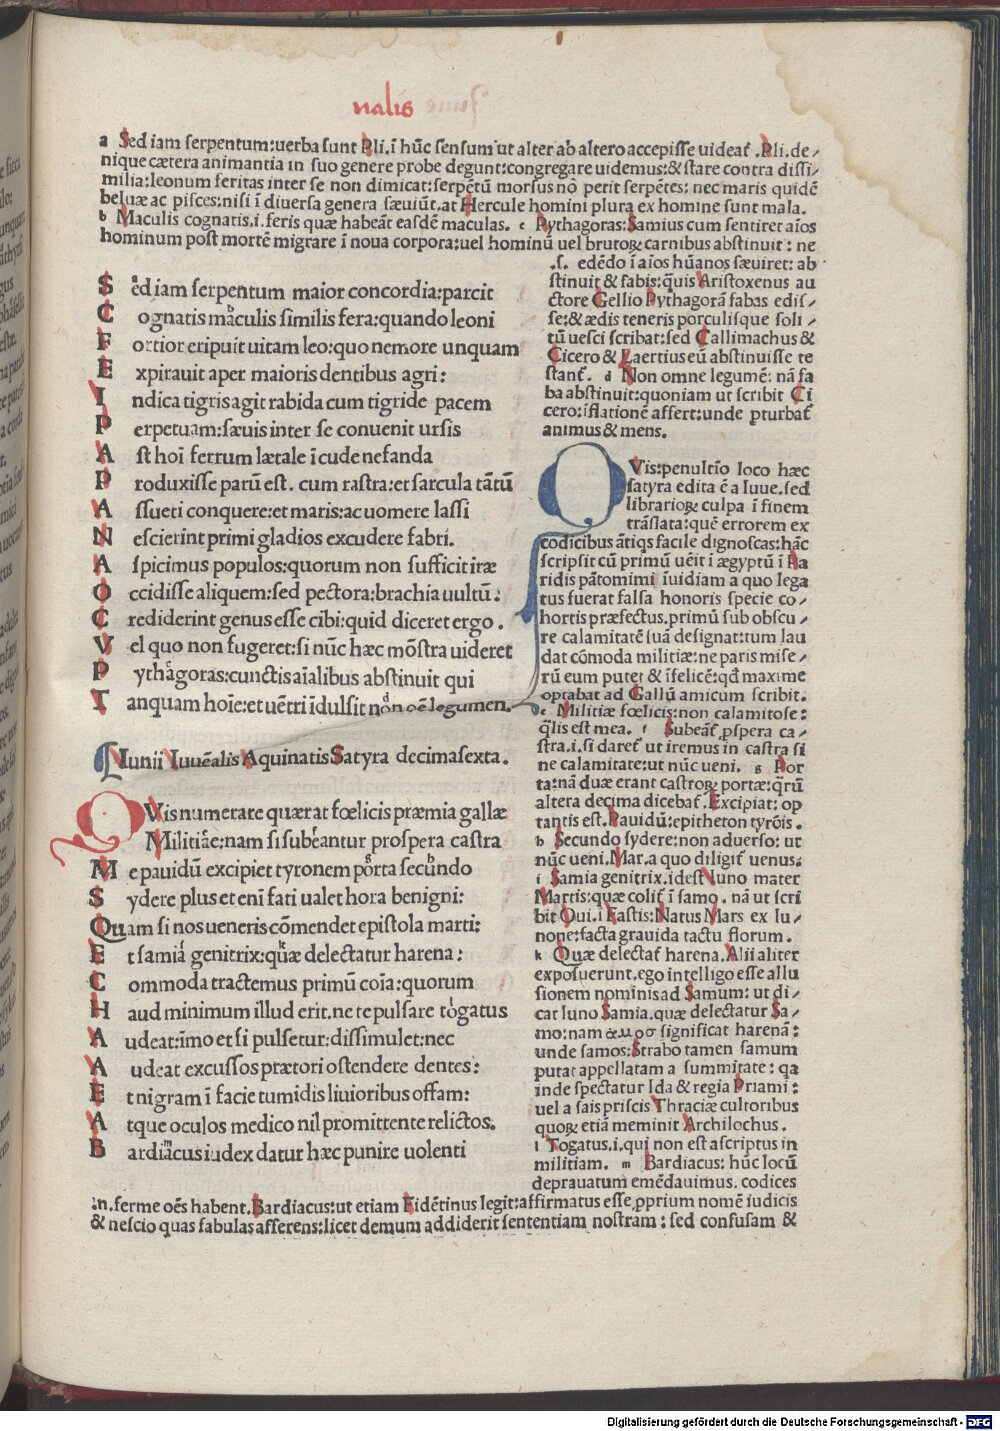 nalis
a Sed iam serpentum:uerba sunt Pli.ī hūc sensum ut alter ab altero accepisse uideat᷑.Pli.de⸗
nique cætera animantia in suo genere probe degunt:congregare uidemus:& stare contra dissi⸗
milia:leonum feritas inter se non dimicat:serpētū morsus nō petit serpētes: nec maris quidē
beluæ ac pisces:nisi ī diuersa genera sæuiūt.at Hercule homini plura ex homine sunt mala.
b Maculis cognatis.i.feris quæ habeāt easdē maculas. c Pythagoras:Samius cum sentiret aīos
hominum post mortē migrare ī noua corpora:uel hominū uel brutoꝝ carnibus abstinuit : ne
.s. edēdo ī aīos hūanos sæuiret: ab
stinuit & fabis: q̄uis Aristoxenus au
ctore Gellio Pythagorā fabas edis⸗
se:& ædis teneris porculisque soli⸗
tū uesci scribat:sed Callimachus &
Cicero & Laertius eū abstinuisse te
stant᷑. d Non omne legumē: nā fa
ba abstinuit:quoniam ut scribit Ci
cero:iflationē affert:unde ꝑturbat᷑
animus & mens.
S ed iam serpentum maior concordia:parcit
C ognatis maculis similis fera:quando leoni
F ortior eripuit uitam leo:quo nemore unquam
E xpirauit aper maioris dentibus apri:
I ndica tigris agit rabida cum tigride pacem
P erpetuam:sæuis inter se conuenit ursis
A st hoī ferrum lætale ī cude nefanda
P roduxisse parū est. cum rastra:et sarcula tātū
A ssueti conquere:et maris:ac uomere lassi
N escierint primi gladios excudere fabri.
A spicimus populos:quorum non sufficit iræ
O ccidisse aliquem:sed pectora:brachia uultū:
C rediderint genus esse cibi:quid diceret ergo.
V el quo non fugeret:si nūc hæc mōstra uideret
P ythagoras:cunctis aīalibus abstinuit qui
T anquam hoīe:et uētri īdulsit nōn oē legumen.
Iunii Iuuēalis Aquinatis Satyra decimasexta.
QVis numerare quærat fœlicis præmia gallæ
Militiæ:nam si subeantur prospera castra
M e pauidū excipiet tyronem porta secundo
S ydere plus et enī fati ualet hora benigni:
Quam si nos ueneris cōmendet epistola marti:
E t samia genitrix:quæ delectatur harena:
C ommoda tractemus primū coīa:quorum
H aud minimum illud erit.ne te pulsare togatus
A udeat:īmo et si pulsetur:dissimulet:nec
A udeat excussos prætori ostendere dentes:
E t nigram ī facie tumidis liuioribus offam:
A tque oculos medico nil promittente relictos.
B ardiacus iudex datur hæc punire uolenti
QVis:penultīo loco hæc
satyra edita ē a Iuue.sed
librarioꝝ culpa ī finem
trāslata:quē errorem ex
codicibus ātiqs facile dignoscas:hāc
scripsit cū primū uēit ī ægyptū ī Pa
ridis pātomimi īuidiam a quo lega
tus fuerat falsa honoris specie co⸗
hortis præfectus.primū sub obscu⸗
re calamitatē suā designat:tum lau
dat cōmoda militiæ:ne paris mise⸗
rū eum putet & īfelicē:qđ maxime
optabat ad Gallū amicum scribit.
e Militiæ fœlicis:non calamitose:
q̄lis est mea. f Subeāt᷑.ꝓspera ca⸗
stra.i.si daret᷑ ut iremus in castra si
ne calamitate:ut nūc ueni. g Por
ta:nā duæ erant castroꝝ portæ:q̄rū
altera decima dicebat᷑.Excipiat: op
tantis est.Pauidū:epitheton tyrōis.
h Secundo sydere:non aduerso: ut
nūc ueni.Mar.a quo diligit᷑ uenus:
i Samia genitrix.idest Iuno mater
Martis:quæ colit᷑ ī samo. nā ut scri
bit Oui.ī Fastis:Natus Mars ex Iu⸗
none:facta grauida tactu florum.
k Quæ delectat᷑ harena.Alii aliter
exposuerunt.ego intelligo esse allu
sionem nominis ad Samum: ut di⸗
cat Iuno Samia.quæ delectatur Sa⸗
mo:nam ἄμμοσ significat harenā:
unde samos:Strabo tamen samum
putat appellatam a summitate: qa
inde spectatur Ida & regia Priami:
uel a sais priscis Thraciæ cultoribus
quoꝝ etiā meminit Archilochus.
l Togatus.i.qui non est ascriptus in
militiam. m Bardiacus: hūc locū
deprauatum emēdauimus. codices
.n.ferme oēs habent.Bardiacus:ut etiam Fidētinus legit:affirmatus esse ꝓprium nomē iudicis
& nescio quas fabulas afferens:licet demum addiderit sententiam nostram : sed confusam &
Digitalisierung gefördert durch die Deutsche Forschungsgemeinschaft - DFG